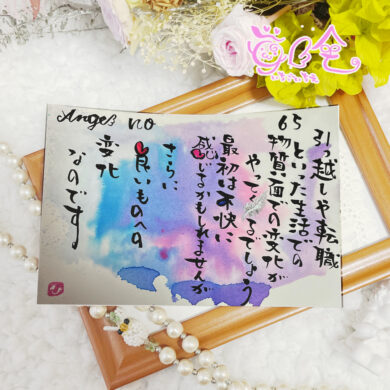 Angel no
65
引っ越しや転職
といった生活での
物質面での変化が
やってくるでしょう
最初は不快に
感じるかもしれませんが
さらに
良いものへの
変化
なのです